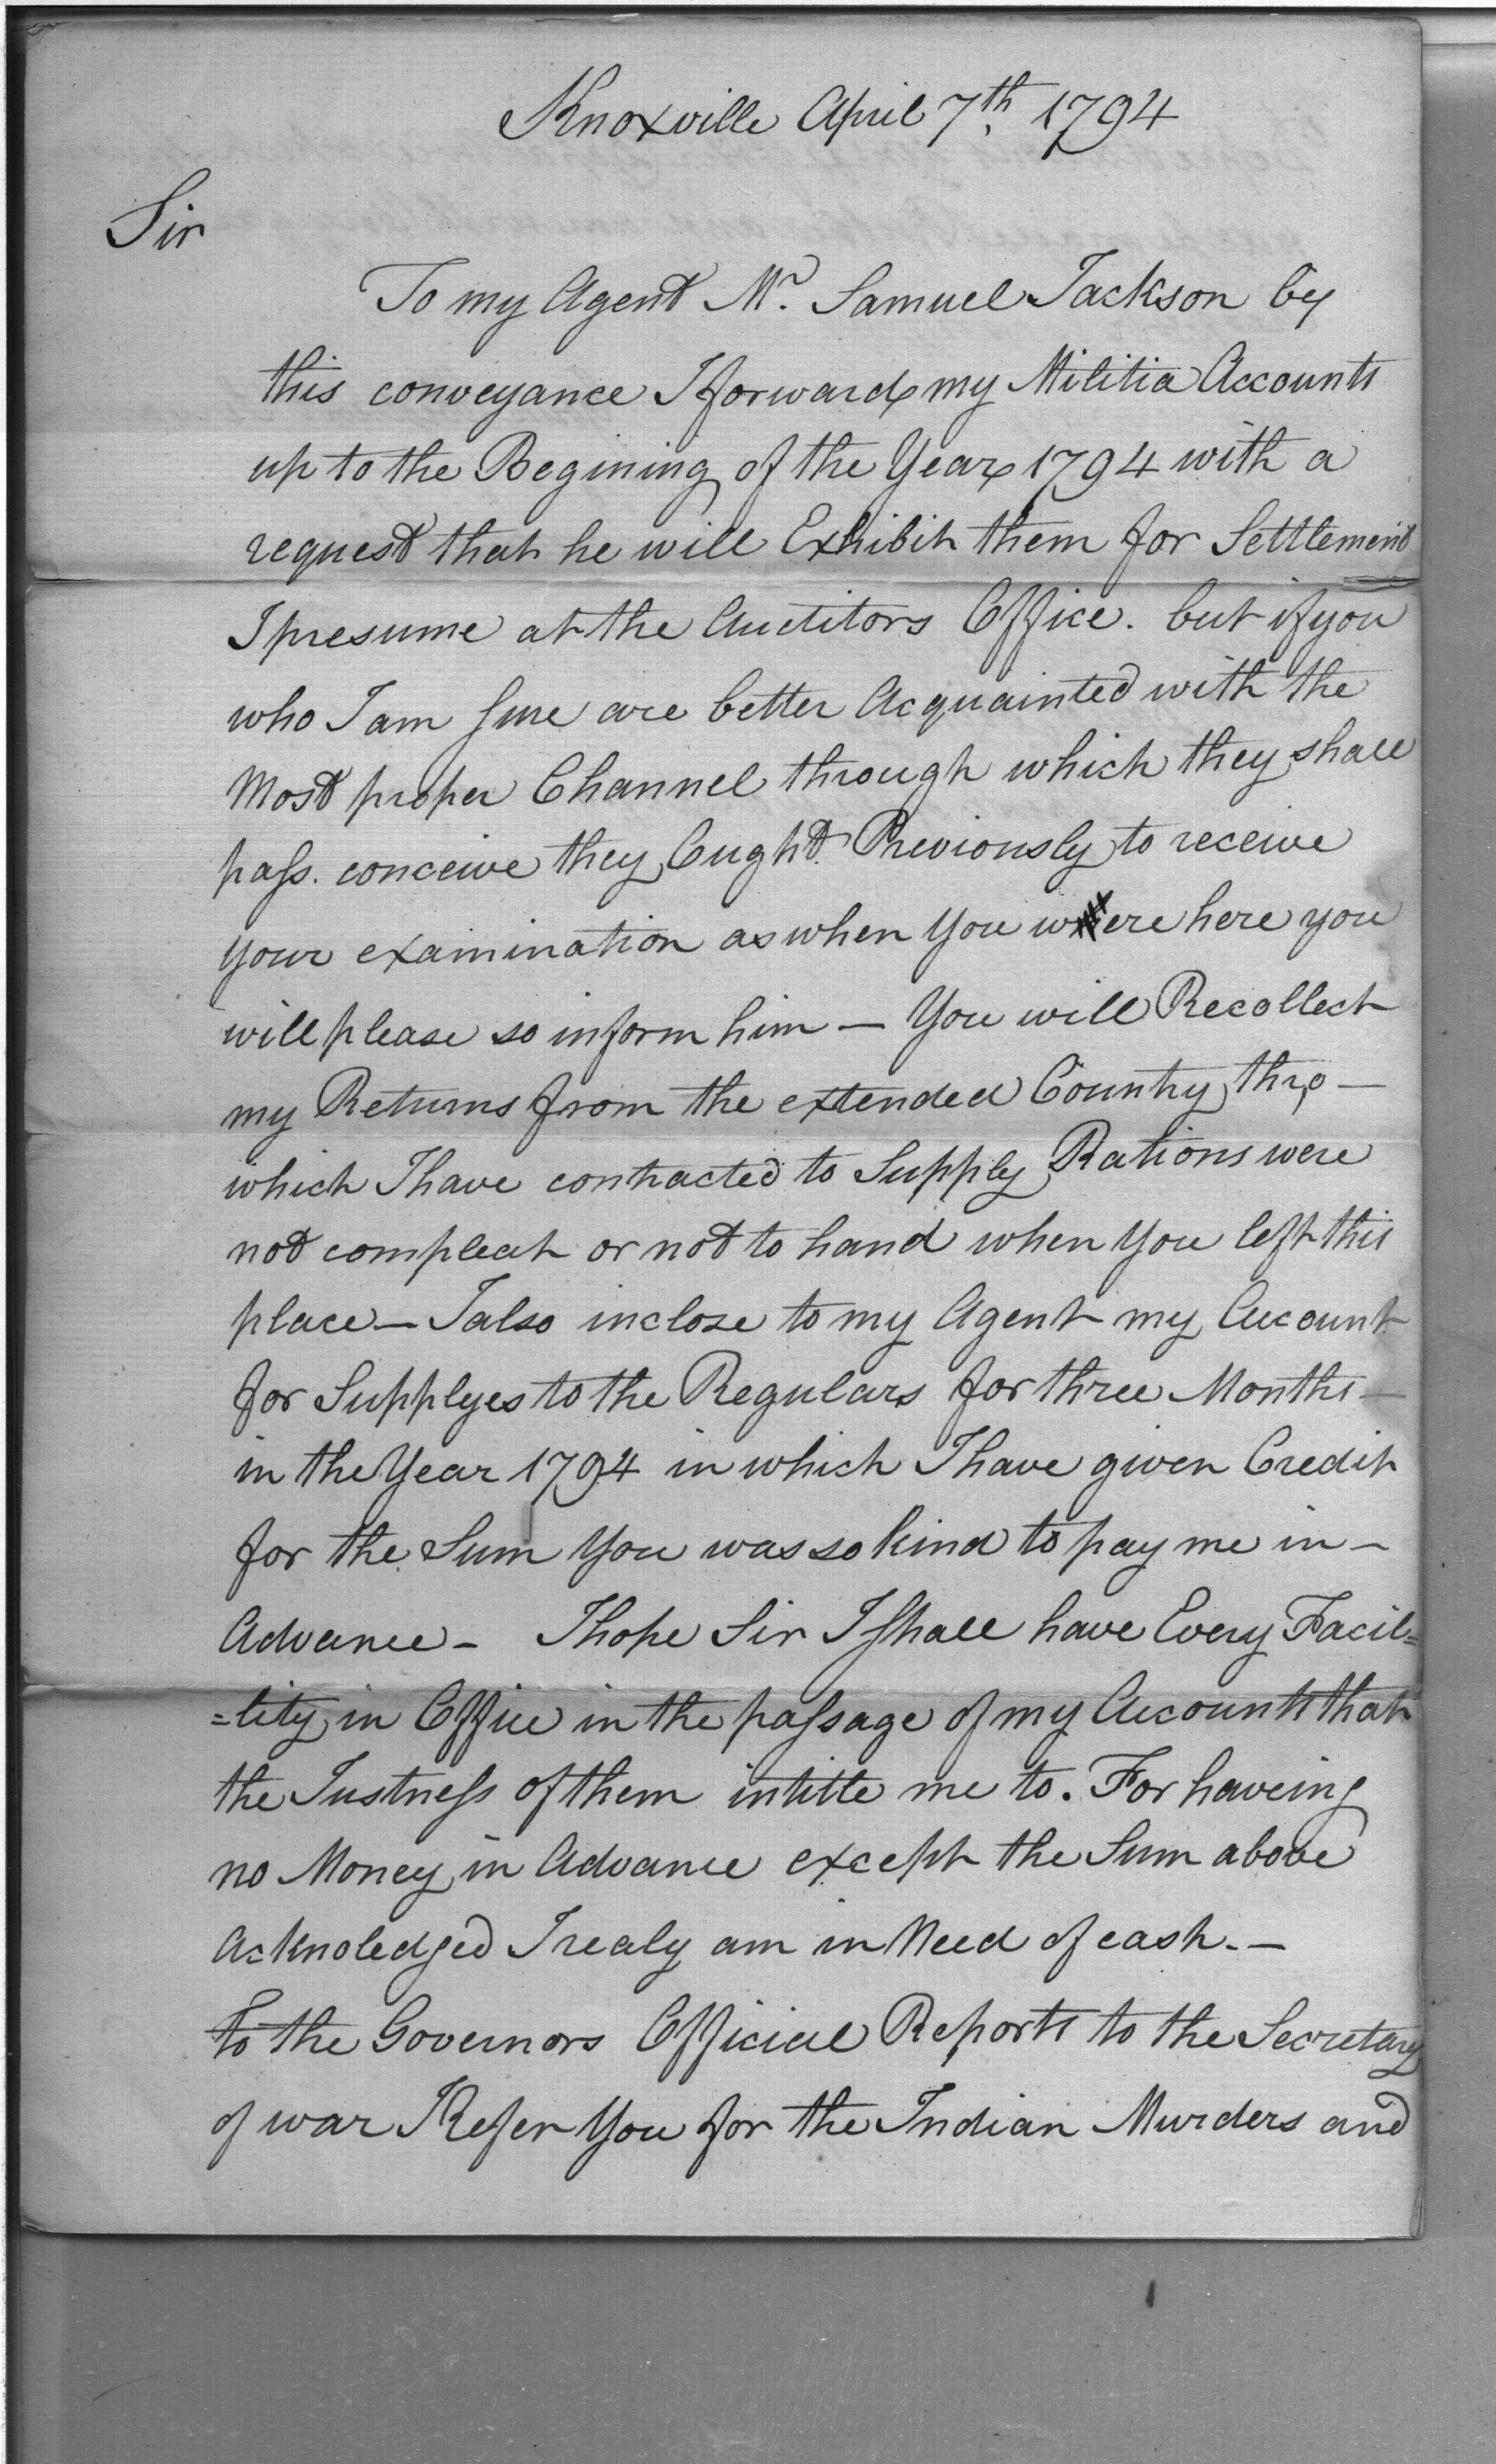 Knoxville April 7th. 1794
Sir
To my Agent Mr. Samuel Jackson by
this conveyance I forward my Militia Accounts
up to the Begining of the Year 1794 with a
request that he will Exhibit them for Settlement
I presume at the Auditors Office. but if you
who I am sure are better Acquainted with the
Most proper Channel through which they shall
pass. conceive they Ought Previously to receive
your examination as when You were here you
will please so inform him — You will Recollect
my Returns from the extended Country thro —
which I have contracted to Supply Rations were
not compleat or not to hand when You left this
place — I also inclose to my Agent my Account
for Supplyes to the Regulars for three Months —
in the Year 1794 in which I have given Credit
for the Sum You was so kind to pay me in —
Advance — I hope Sir I shall have Every Facil=
=lity in Office in the passage of my Accounts that
the Justness of them intitle me to. For haveing
no Money in Advance except the Sum above
Acknoledged I realy am in Need of cash. —
To the Governors Official Reports to the Secretary
of war I Refer You for the Indian Murders and